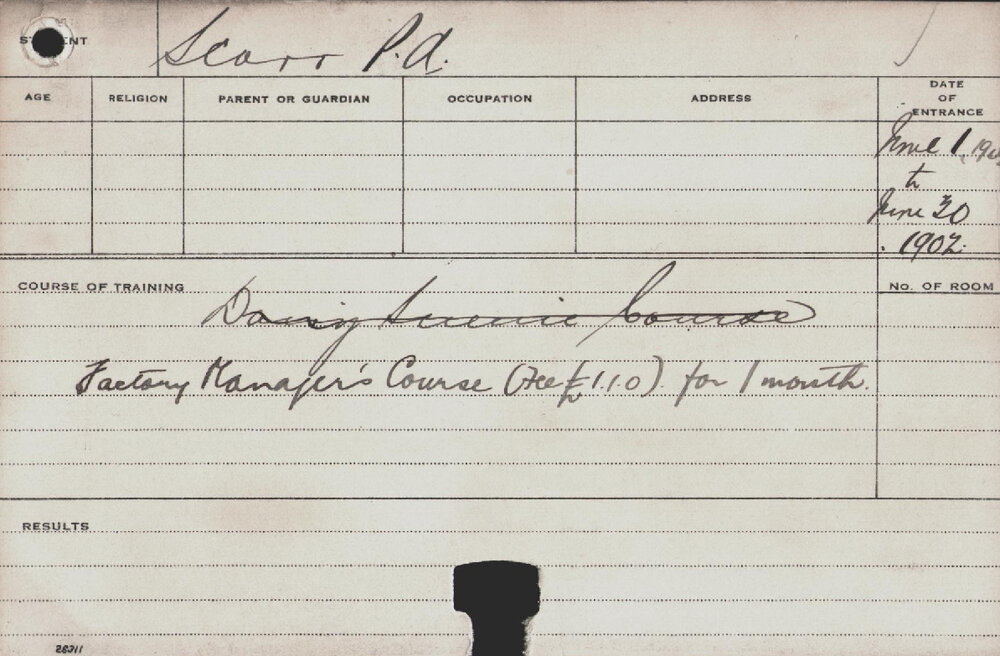 STUDENT Scarr P.A.
AGE RELIGION PARENT OR GUARDIAN OCCUPATION ADDRESS DATE OF ENTRANCE
June 1, 190
to
June 30
1902.
COURSE OF TRAINING Dairy Science Course No. OF ROOM
Factory Manager's Course (Fee £1.1.0). for 1 month.
RESULTS